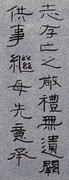 供事繼母先意承
志存亡之敬禮無遺闕